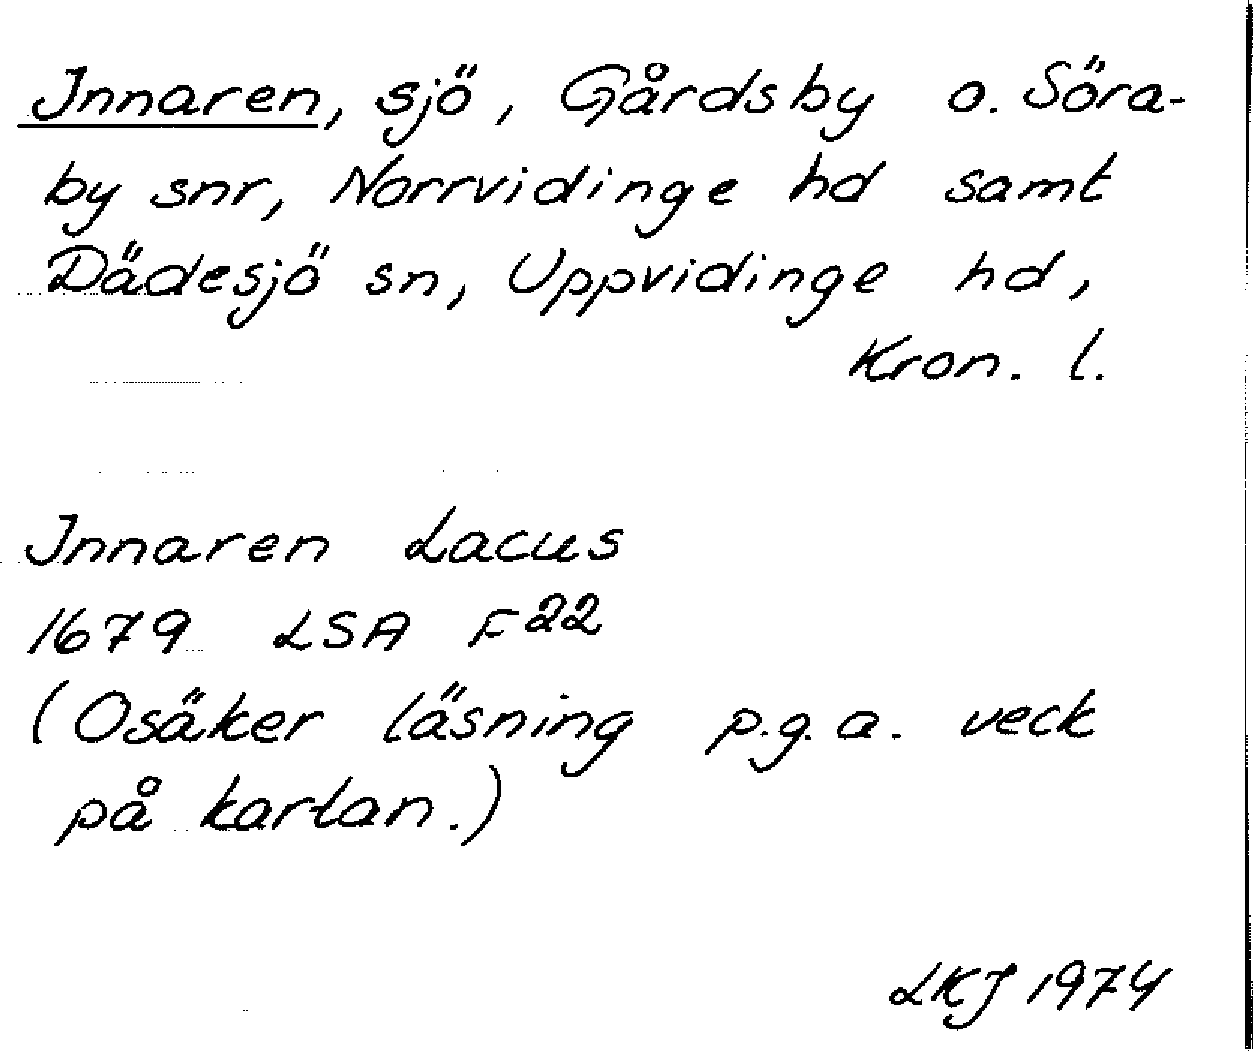 Innaren, sjö, Gårdsby o. Söra-
by snr, Norrvidinge hd samt
Dädesjö sn, Uppvidinge hd,
Kron. l.
Innaren Lacus
1679 LSA F22
(Osäker läsning p.g.a. veck
på kartan.)
LKJ 1974